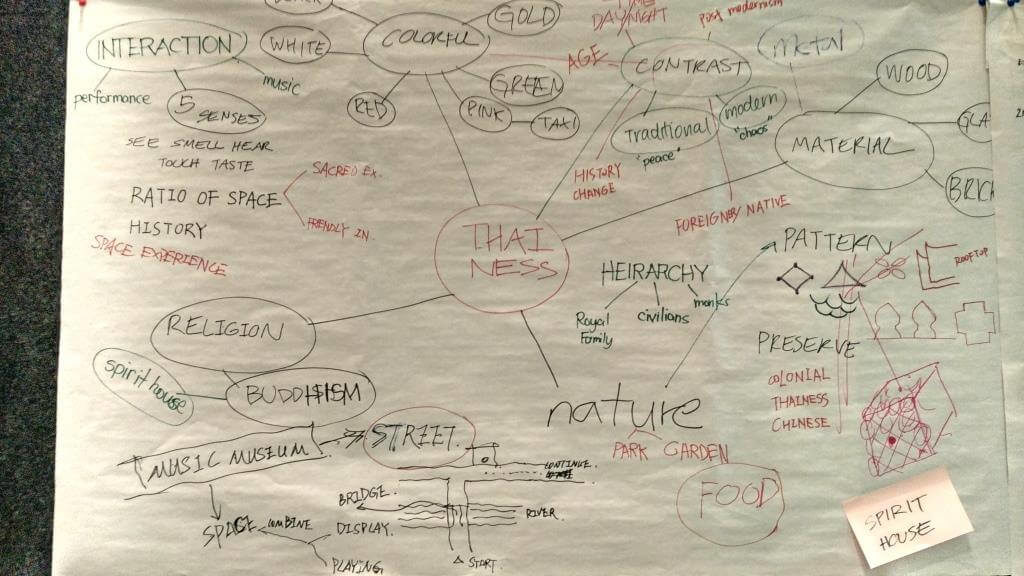 INTERACTION
performance
music
5
SENSES
SEE SMELL HEAR
TOUCH TASTE
RATIO OF SPACE
SACRED EX.
FRIENDLY IN.
HISTORY
SPACE EXPERIENCE
COLORFUL
WHITE
GOLD
RED
GREEN
PINK
TAXI
DAY/NIGHT
post modernism
AGE
CONTRAST
Traditional
"peace"
modern
"chaos"
HISTORY
CHANGE
FOREIGNER/NATIVE
metal
WOOD
MATERIAL
THAI
NESS
HEIRARCHY
Royal
Family
civilians
monks
PATTERN
ROOFTOP
PRESERVE
COLONIAL
THAINESS
CHINESE
RELIGION
spirit house
BUDDHISM
nature
PARK GARDEN
FOOD
MUSIC MUSEUM
STREET.
SPACE
COMBINE
DISPLAY.
PLAYING.
BRIDGE.
CONTINUE.
RIVER.
START.
SPIRIT
HOUSE